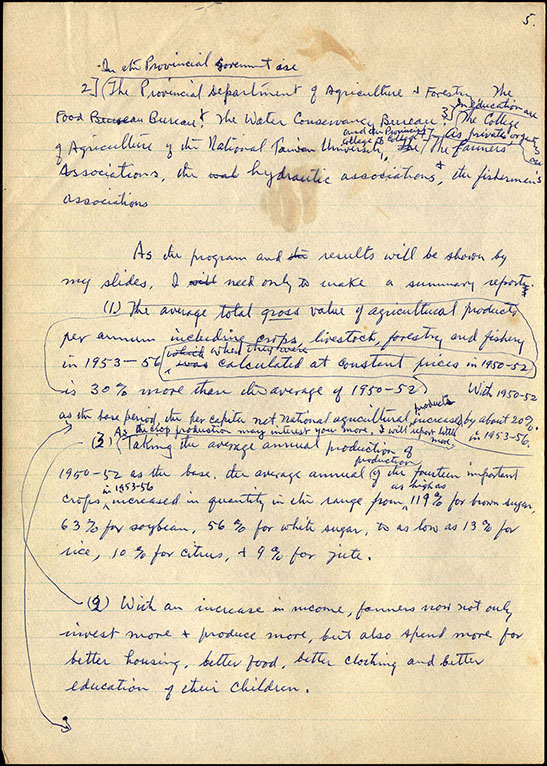 5.
In the Provincial Government are
2] (The Provincial Department of Agriculture & Forestry, The
Food Bureau Bureau & The Water Conservancy Bureau. In education are
3] (The College
of Agriculture of the National Taiwan University, and the Provincial College As private
The (The farmers'
Associations, the hydraulic associations, & the fishermen's
associations
As the program and the results will be shown by
my slides, I will need only to make a summary report.
(1) The average total gross value of agricultural products
per annum including crops, livestock, forestry and fishery
in 1953-56, which when they were was calculated at constant prices in 1950-52
is 30% more than the average of 1950-52. With 1950-52
as the base period, the per capita net national agricultural products increased by about 20%
in 1953-56.
As the crop production may interest you more, I will report with more.
(3) (Taking the average annual production of
1950-52 as the base, the average annual production of the fourteen important
crops in 1953-56 increased in quantity in the range from as high as 119% for brown sugar,
63% for soybean, 56% for white sugar, to as low as 13% for
rice, 10% for citrus, & 9% for jute.
(2) With an increase in income, farmers now not only
invest more & produce more, but also spend more for
better housing, better food, better clothing and better
education of their children.